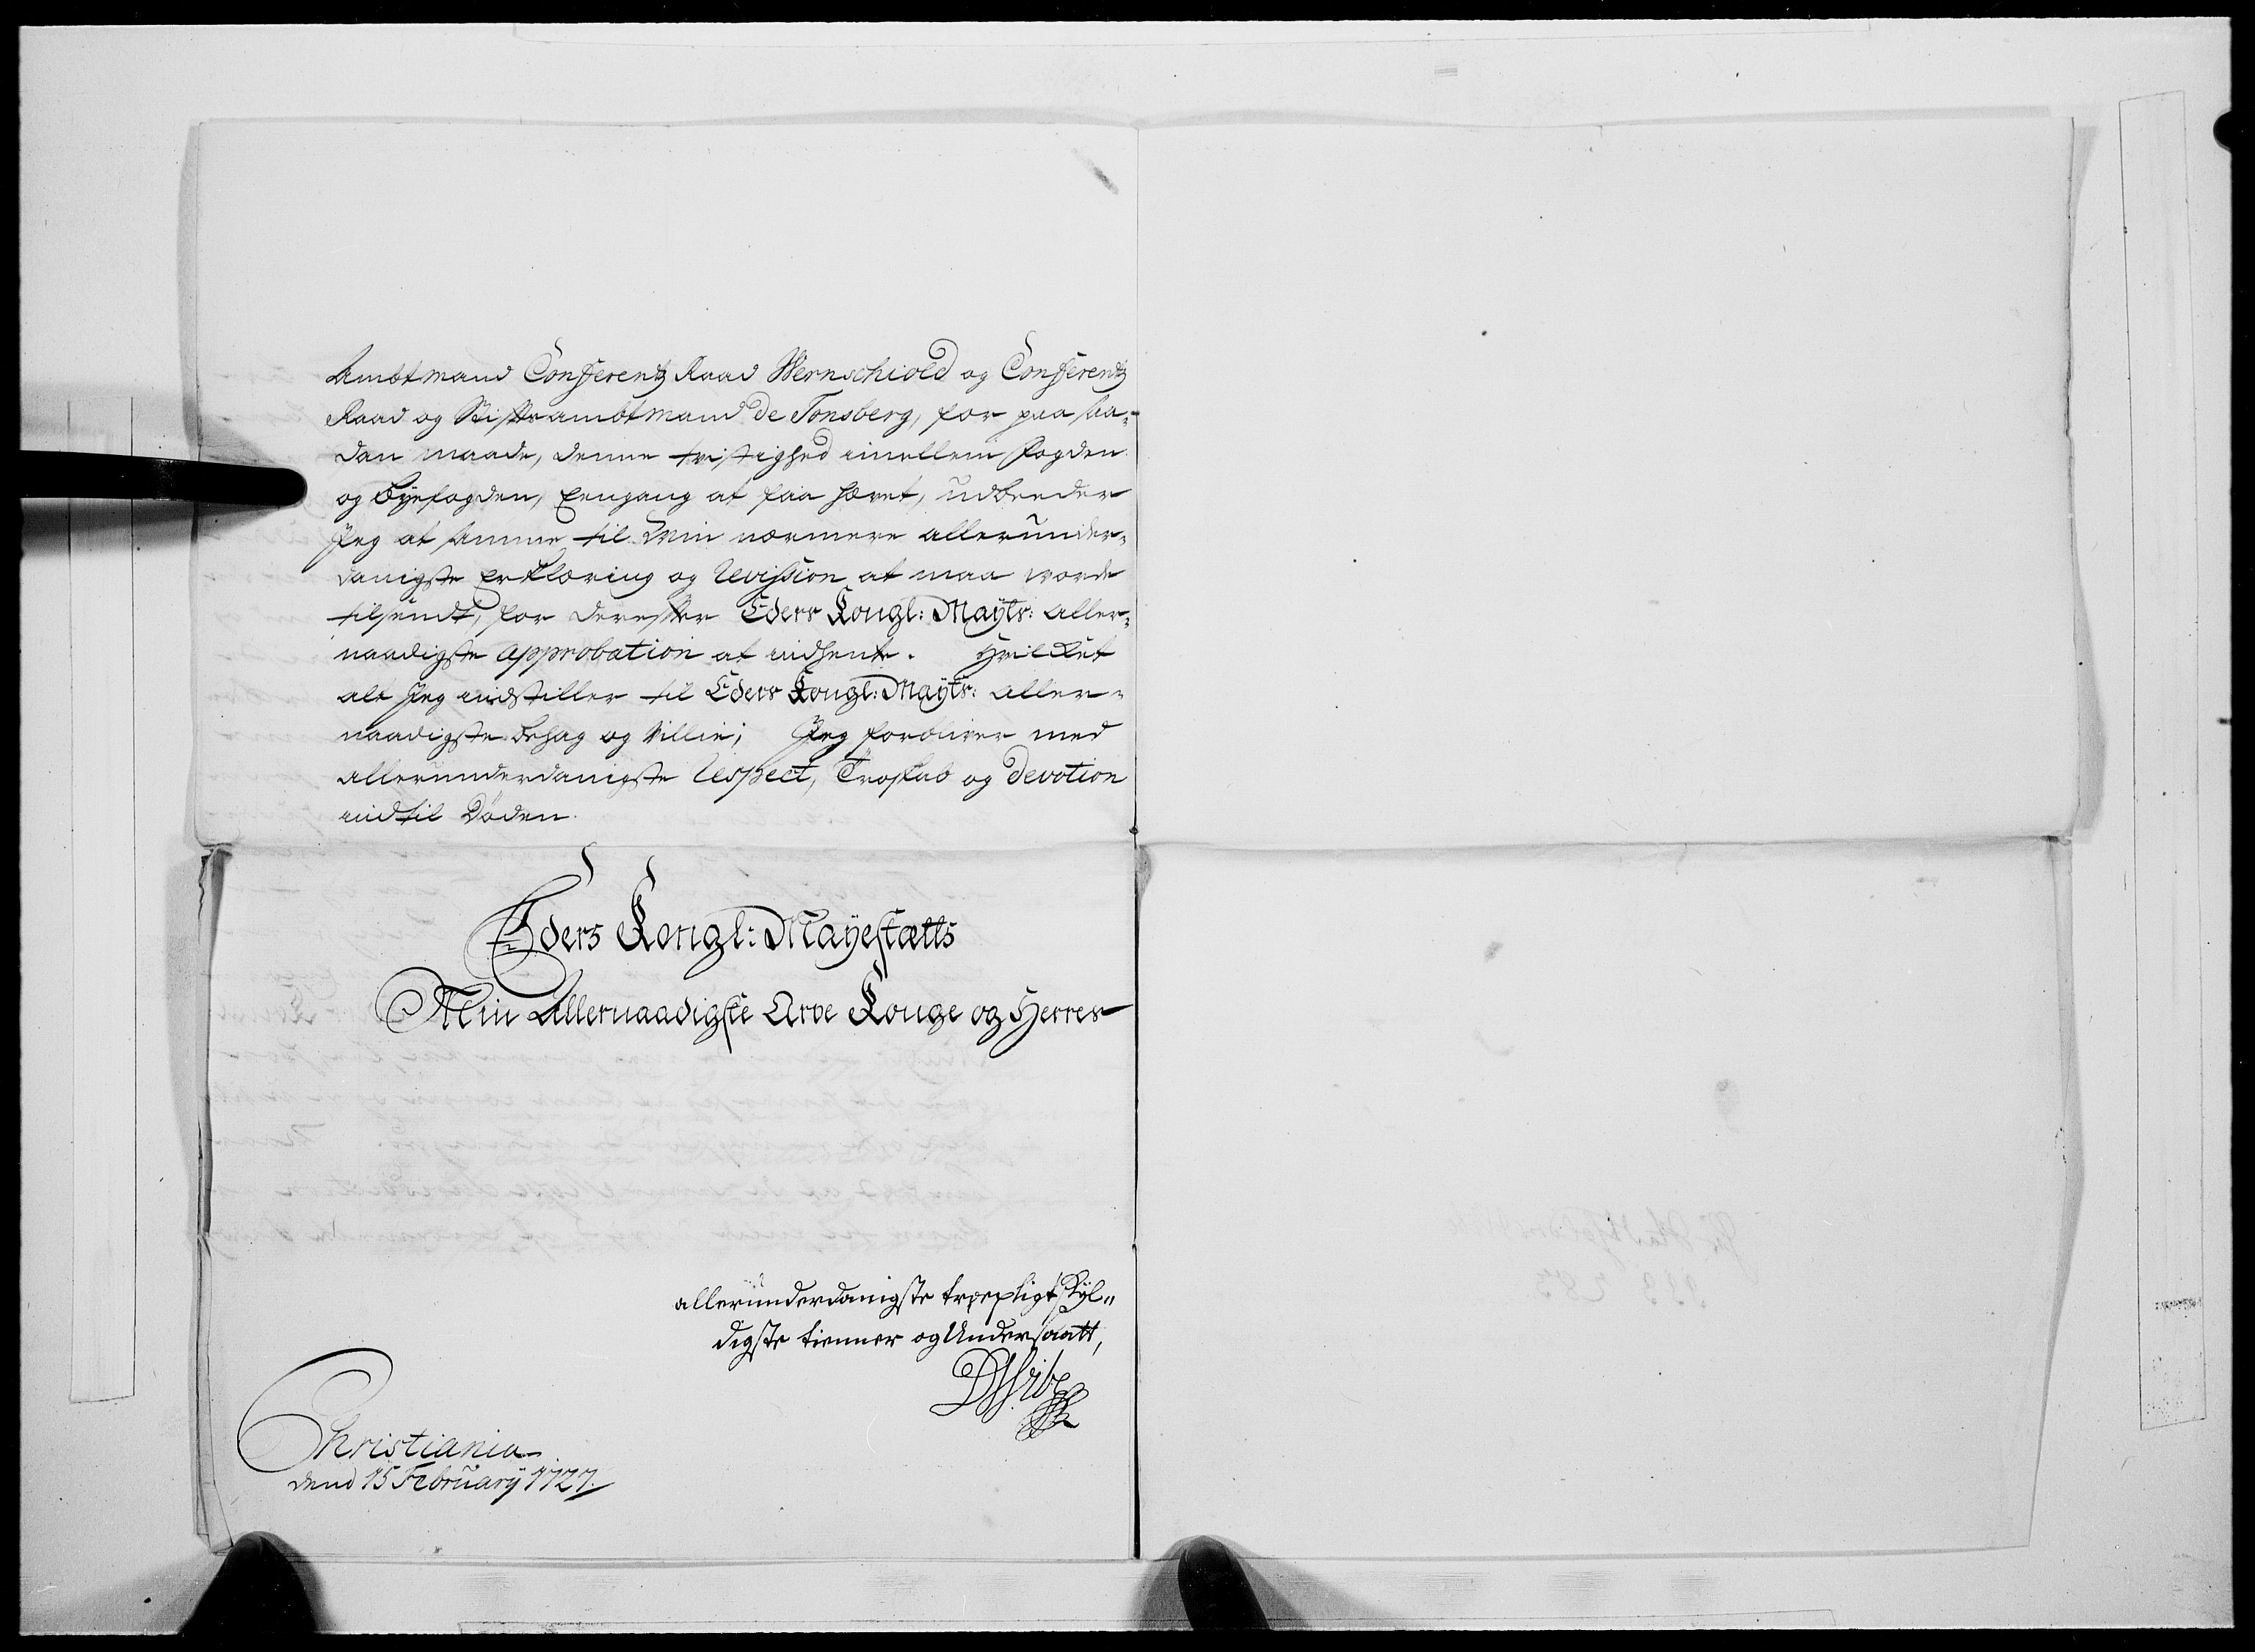 Ambtmand Conferentz Raad Wernschiold og Conferentz
Raad og Stiftsambtmand de Tonsberg, for paa saa-
dan maade, denne tvistighed imellem fogden
og byefogden, Eengang at faa hævet, udbeeder
Jeg at samme til Min nærmere allerunder-
danigste Erklæring og Revission at maa worde
tilsendt, for derefter Eders Kongl: Mayts: aller-
naadigste approbation at indhente. Hvilket
alt Jeg indstiller til Eders Kongl: Mayts: aller-
naadigste behag og Villie; Jeg forbliver med
allerunderdanigste Respect, Troskab og devotion
indtil Døden.
Eders Kongl: Mayestætts
Min Allernaadigste Arve Konge og Herres
allerunderdanigste troepligt skyl-
digste tienner og Undersaatt,
DVibe
Christiania
dend 15 February 1727.